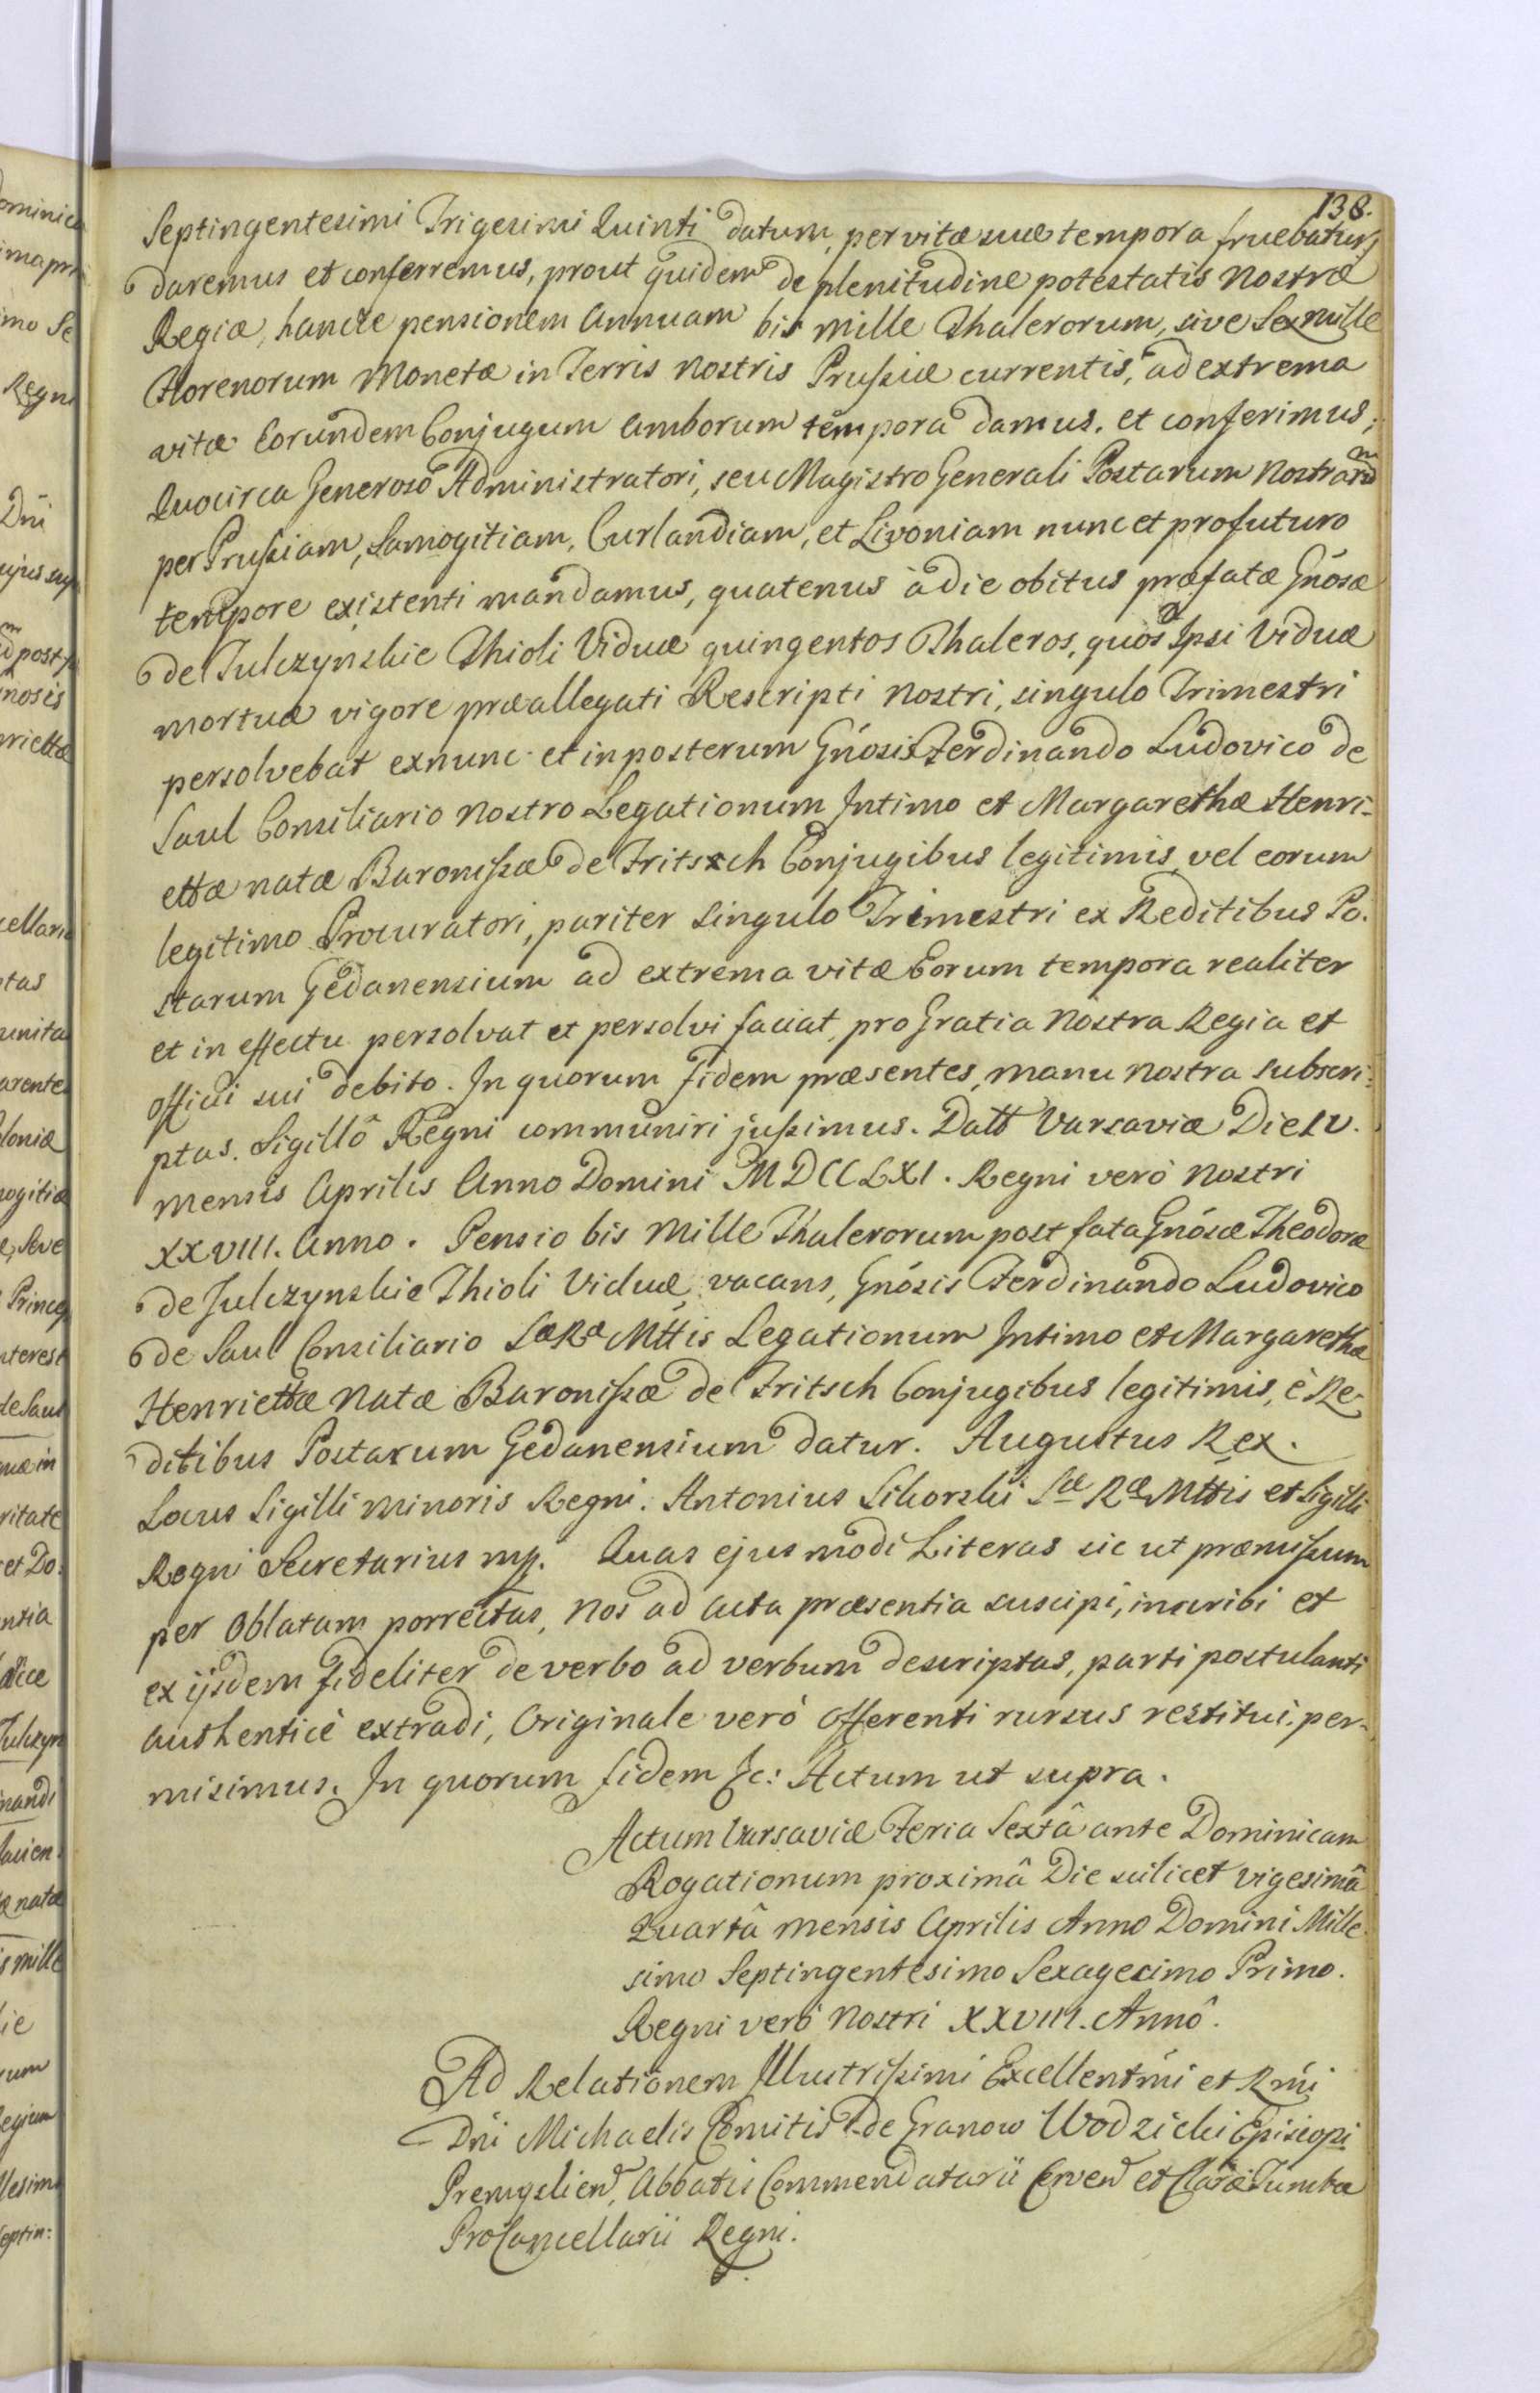 138.
Septingentesimi Trigesimi Quinti datum, per vitæ suæ tempora fruebatur,
daremus et conferremus, prout quidem de plenitudine potestatis Nostræ
Regiæ, hancce pensionem Annuam bis mille Thalerorum, sive Sex mille
Florenorum Monetæ in Terris Nostris Prussiæ currentis, ad extrema
vitæ Eorundem Conjugum Amborum tempora damus. et conferimus;
Quocirca Generoso Administratori, seu Magistro Generali Postarum Nostrarum
per Prussiam, Samogitiam, Curlandiam, et Livoniam nunc et pro futuro
tempore existenti mandamus, quatenus à die obitus præfatæ Gnósæ
de Julczynskie Thioli Viduæ quingentos Thaleros, quos Ipsi Viduæ
mortuæ vigore præallegati Rescripti Nostri, singulo Trimestri
persolvebat exnunc et inposterum Gnósis Ferdinando Ludovico de
Saul Consiliario Nostro Legationum Intimo et Margarethæ Henri-
ettæ natæ Baronissæ de Fritsch Conjugibus legitimis, vel eorum
legitimo Procuratori, pariter singulo Trimestri ex Reditibus Po.
starum Gedanensium ad extrema vitæ Eorum tempora realiter
et in effectu persolvat et persolvi faciat, pro Gratia Nostra Regia et
officii sui debito. In quorum Fidem præsentes, manu Nostra subscri:
ptas. Sigillô Regni communiri jussimus. Datt Varsaviæ Die IV.
mensis Aprilis Anno Domini MDCCLXI. Regni verò Nostri
XXVIII. Anno. Pensio bis Mille Thalerorum post fata Gnósæ Theodoræ
de Julczynskie Thioli Viduæ, vacans, Gnósis Ferdinando Ludovico
de Saul Consiliario Sæ Ræ Mttis Legationum Intimo et Margarethæ
Henriettæ Natæ Baronissæ de Fritsch Conjugibus legitimis, è Re-
ditibus Postarum Gedanensium datur. Augustus Rex.
Locus Sigilli Minoris Regni. Antonius Sikorski Sæ Ræ Mttis et Sigilli
Regni Secretarius mp. Quas ejusmodi Literas sic ut præmissum
per Oblatam porrectas, Nos ad Acta præsentia suscipi, inscribi et
ex ijsdem fideliter de verbo ad verbum descriptas, parti postulanti
authenticè extradi, Originale verò Offerenti rursus restitui, per-
misimus. In quorum fidem &c: Actum ut supra.
Actum Varsaviæ Feria Sextâ ante Dominicam
Rogationum proximâ Die scilicet vigesimâ
Quartâ mensis Aprilis Anno Domini Mille-
simo Septingentesimo Sexagesimo Primo.
Regni verò Nostri XXVIII. Annô.
Ad Relationem Illustrissimi Excellentmi et Rmi
Dni Michaelis Comitis de Granow Wodzicki Episcopi
Premyslien, Abbatis Commendatarii Cerven et Claræ Tumbæ
ProCancellarii Regni.